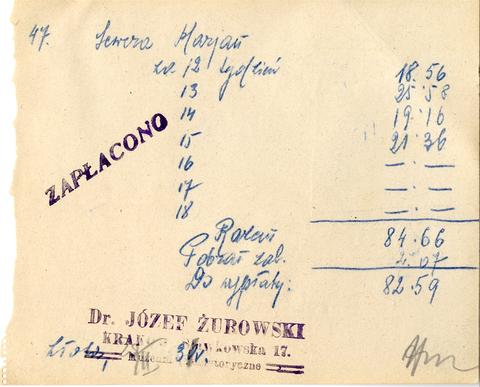 47. Sewera Marjan
za 12 tydzień 18.56
13 25.58
14 19.16
15 21.36
16 —.—
17 —.—
18 —.—
ZAPŁACONO
Razem 84.66
Pobrał zal. 2.07
Do wypłaty: 82.59
Dr. JÓZEF ŻUROWSKI
KRAK 17.